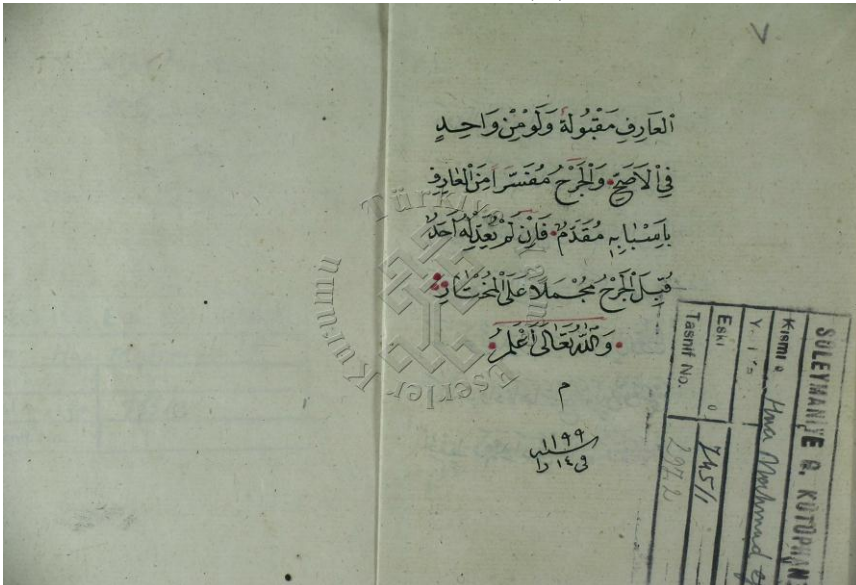 ٧
العَارِفِ مَقْبُولَةٌ وَلَوْ مِنْ وَاحِدٍ
فِي الْاَصَحِّ وَالْجَرْحُ مُفَسَّرًا مِنَ الْعَارِفِ
بِاَسْبَابِهِ مُقَدَّمٌ فَاِنْ لَمْ يُعَدِّلْهُ اَحَدٌ
قُبِلَ الْجَرْحُ مُجْمَلًا عَلَى الْمُخْتَارِ
وَاللّٰهُ تَعَالَى اَعْلَمُ
م
١١٩٩
سنة
في ١٤ را
Türkiye
Eserler Kurumu
SÜLEYMANİYE G. KÜTÜPHAN
Kısmı
Mahmud ef
Eski
745/1
Tasnif No.
297.2